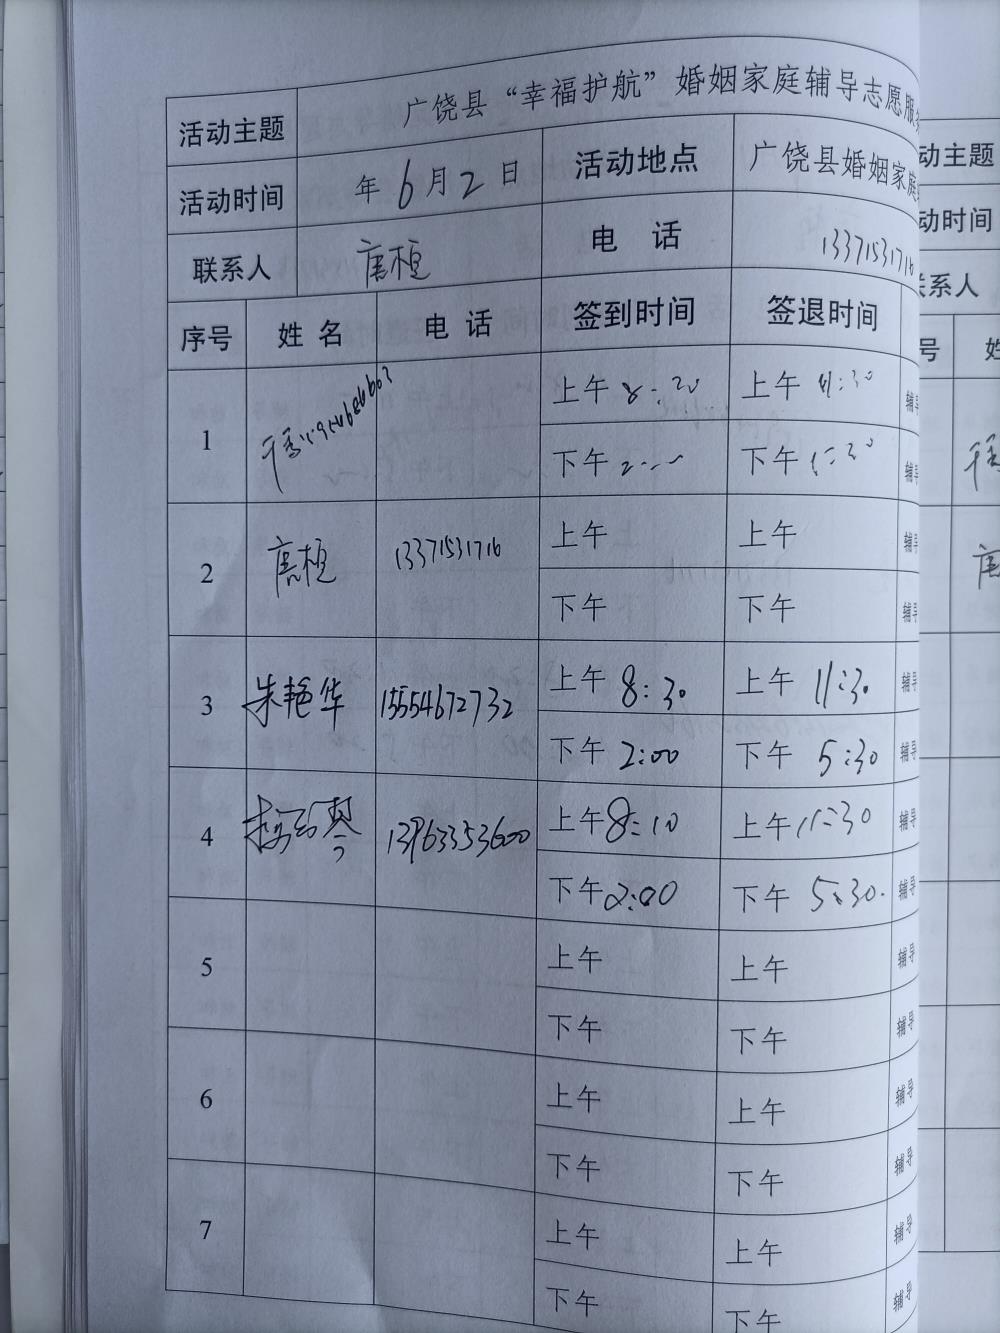 活动主题 广饶县“幸福护航”婚姻家庭辅导志愿服
活动时间 年6月2日 活动地点 广饶县婚姻家庭
联系人 唐桓 电 话 13371531716
序号 姓 名 电 话 签到时间 签退时间
1 上午 8:20 上午 11:30 辅导
下午 2:~~ 下午 5:30 辅导
2 唐桓 13371531716 上午 上午 辅导
下午 下午 辅导
3 朱艳华 15554672732 上午 8:30 上午 11:30 辅导
下午 2:00 下午 5:30 辅导
4 13963353600 上午 8:10 上午 11:30 辅导
下午 2:00 下午 5:30. 辅导
5 上午 上午 辅导
下午 下午 辅导
6 上午 上午 辅导
下午 下午 辅导
7 上午 上午 辅导
下午 下午 辅导
动主题
动时间
系人
号 姓